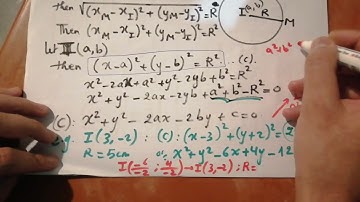 then √(x_M - x_I)² + (y_M - y_I)² = R
Then (x_M - x_I)² + (y_M - y_I)² = R²
let I (a,b)
then (x-a)² + (y-b)² = R² .(c).
x² - 2ax + a² + y² - 2yb + b² = R²
x² + y² - 2ax - 2yb + a² + b² - R² = 0
(C): x² + y² - 2ax - 2by + c = 0
e.g. I(3,-2) : (c): (x-3)² + (y+2)² =
R = 5cm or x² + y² - 6x + 4y - 12
I(-6/-2 ; 4/-2) → I(3,-2) ; R =
I (a,b)
R
M
a²+b²